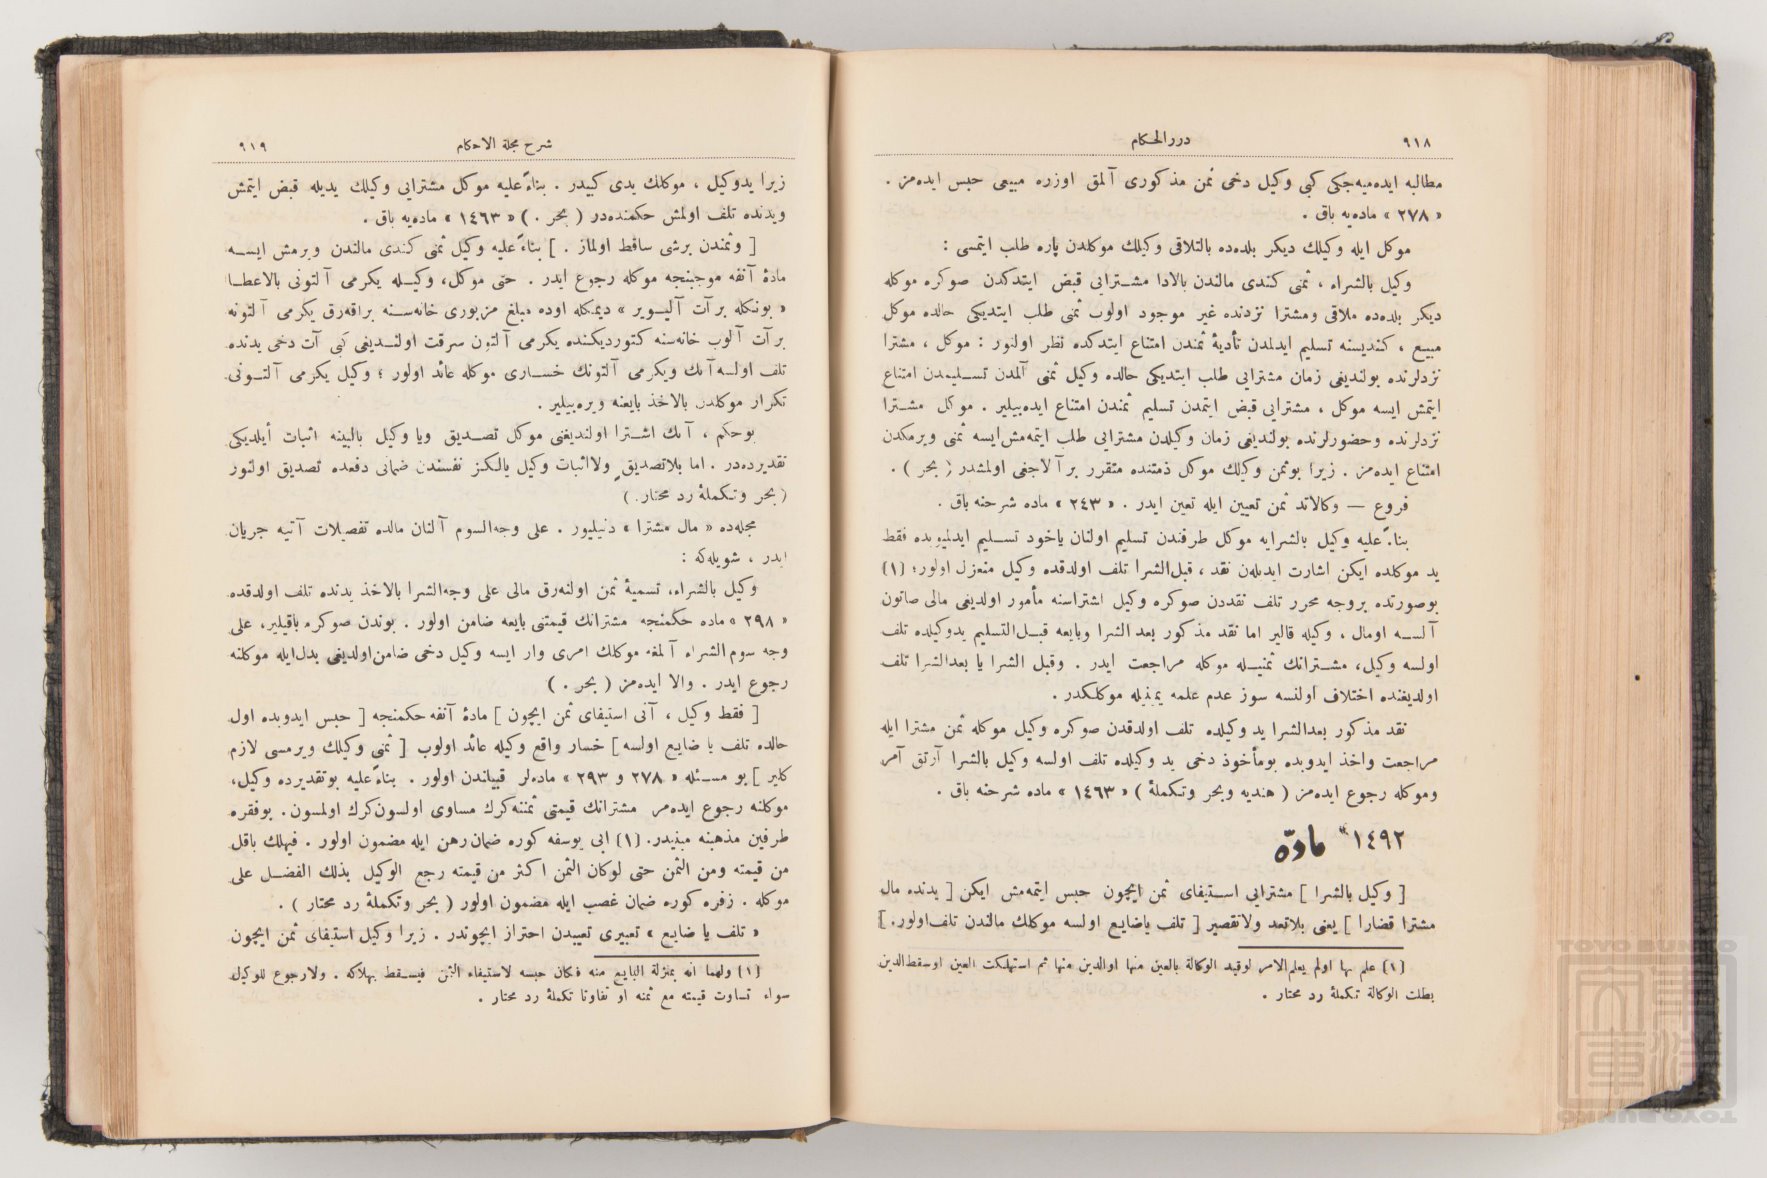 ٩١٨
درر الحكام
مطالبه ايده‌ميه‌جكى كبى وكيل دخى ثمن مذكورى آلمق اوزره مبيعى حبس ايده‌مز .
« ٢٧٨ » ماده‌يه باق .
موكل ايله وكيلك ديكر بلده‌ده بالتلاقى وكيلك موكلدن پاره طلب ايتمسى :
وكيل بالشراء ، ثمنى كندى مالندن بالادا مشترايى قبض ايتدكدن صوكره موكله
ديكر بلده‌ده ملاقى ومشترا نزدنده غير موجود اولوب ثمنى طلب ايتديكى حالده موكل
مبيع ، كنديسنه تسليم ايدلمدن تأديۀ ثمندن امتناع ايتدكده نظر اولنور : موكل ، مشترا
نزدلرنده بولنديغى زمان مشترايى طلب ايتديكى حالده وكيل ثمنى آلمدن تسليمدن امتناع
ايتمش ايسه موكل ، مشترايى قبض ايتمدن تسليم ثمندن امتناع ايده‌بيلير . موكل مشترا
نزدلرنده وحضورلرنده بولنديغى زمان وكيلدن مشترايى طلب ايتمه‌مش‌ايسه ثمنى ويرمكدن
امتناع ايده‌مز . زيرا بوثمن وكيلك موكل ذمتنده متقرر بر آلاجغى اولمشدر ( بحر ) .
فروع — وكالاتد ثمن تعيين ايله تعين ايدر . « ٢٤٣ » ماده شرحنه باق .
بناءً عليه وكيل بالشرايه موكل طرفندن تسليم اولنان ياخود تسليم ايدلميوبده فقط
يد موكلده ايكن اشارت ايديلن نقد ، قبل‌الشرا تلف اولدقده وكيل منعزل اولور؛ (١)
بوصورتده بروجه محرر تلف نقددن صوكره وكيل اشتراسنه مأمور اولديغى مالى صاتون
آلسه اومال ، وكيله قالير اما نقد مذكور بعد الشرا وبايعه قبل‌التسليم يدوكيلده تلف
اولسه وكيل، مشترانك ثمنيله موكله مراجعت ايدر . وقبل الشرا يا بعدالشرا تلف
اولديغنده اختلاف اولنسه سوز عدم علمه يمينيله موكلكدر .
نقد مذكور بعدالشرا يد وكيلده تلف اولدقدن صوكره وكيل موكله ثمن مشترا ايله
مراجعت واخذ ايدوبده بومأخوذ دخى يد وكيلده تلف اولسه وكيل بالشرا آرتق آمر
وموكله رجوع ايده‌مز ( هنديه وبحر وتكملۀ ) « ١٤٦٣ » ماده شرحنه باق .
١٤٩٢ مادّه
[ وكيل بالشرا ] مشترايى استيفاى ثمن ايچون حبس ايتمه‌مش ايكن [ يدنده مال
مشترا قضارا ] يعنى بلاتعد ولاتقصير [ تلف ياضايع اولسه موكلك مالندن تلف‌اولور. ]
(١) علم بها اولم يعلم‌الامر لوقيد الوكالة بالعين منها اوالدين منها ثم استهلكت العين اوسقط‌الدين
بطلت الوكالة تكملۀ رد محتار .
شرح مجلة الاحكام
٩١٩
زيرا يدوكيل ، موكلك يدى كبيدر . بناءً عليه موكل مشترايى وكيلك يديله قبض ايتمش
ويدنده تلف اولمش حكمنده‌در ( بحر . ) « ١٤٦٣ » ماده‌يه باق .
[ وثمندن برشى ساقط اولماز . ] بناءً عليه وكيل ثمنى كندى مالندن ويرمش ايسه
مادۀ آنفه موجبنجه موكله رجوع ايدر . حتى موكل، وكيله يكرمى آلتونى بالاعطا
« بونكله بر آت آليوير » ديمكله اوده مبلغ مزبورى خانه‌سنه براقه‌رق يكرمى آلتونه
بر آت آلوب خانه‌سنه كتورديكنده يكرمى آلتون سرقت اولنديغى كبى آت دخى يدنده
تلف اولسه آتك ويكرمى آلتونك خسارى موكله عائد اولور ؛ وكيل يكرمى آلتونى
تكرار موكلدن بالاخذ بايعنه ويره‌بيلير .
بوحكم ، آتك اشترا اولنديغنى موكل تصديق ويا وكيل بالبينه اثبات أيلديكى
تقديرده‌در . اما بلاتصديق ولااثبات وكيل يالكز نفسندن ضمانى دفعده تصديق اولنور
( بحر وتكملۀ رد محتار. )
مجله‌ده « مال مشترا » دنيليور . على وجه‌السوم آلنان مالده تفصيلات آتيه جريان
ايدر ، شويله‌كه :
وكيل بالشراء، تسميۀ ثمن اولنه‌رق مالى على وجه‌الشرا بالاخذ يدنده تلف اولدقده
« ٢٩٨ » ماده حكمنجه مشترانك قيمتنى بايعه ضامن اولور . بوندن صوكره باقيلير، على
وجه سوم الشراء آلمغه موكلك امرى وار ايسه وكيل دخى ضامن‌اولديغى بدل‌ايله موكلنه
رجوع ايدر . والا ايده‌مز ( بحر . )
[ فقط وكيل ، آنى استيفاى ثمن ايچون ] مادۀ آنفه حكمنجه [ حبس ايدوبده اول
حالده تلف يا ضايع اولسه ] خسار واقع وكيله عائد اولوب [ ثمنى وكيلك ويرمسى لازم
كلير ] بو مسئله « ٢٧٨ و ٢٩٣ » ماده‌لر قبيلندن اولور . بناءً عليه بوتقديرده وكيل،
موكلنه رجوع ايده‌مز مشترانك قيمتى ثمننه‌كرك مساوى اولسون‌كرك اولمسون. بوفقره
طرفين مذهبنه مبنيدر. (١) ابى يوسفه كوره ضمان رهن ايله مضمون اولور . فيهلك باقل
من قيمته ومن الثمن حتى لوكان الثمن اكثر من قيمته رجع الوكيل بذلك الفضل على
موكله . زفره كوره ضمان غصب ايله مضمون اولور ( بحر وتكملۀ رد محتار ) .
« تلف يا ضايع » تعبيرى تعييبدن احتراز ايچوندر . زيرا وكيل استيفاى ثمن ايچون
(١) ولهما انه بمنزلة البايع منه فكان حبسه لاستيفاء الثمن فيسقط بهلاكه . ولارجوع للوكيل
سواء تساوت قيمته مع ثمنه او تفاوتا تكملۀ رد محتار .
TOYO BUNKO